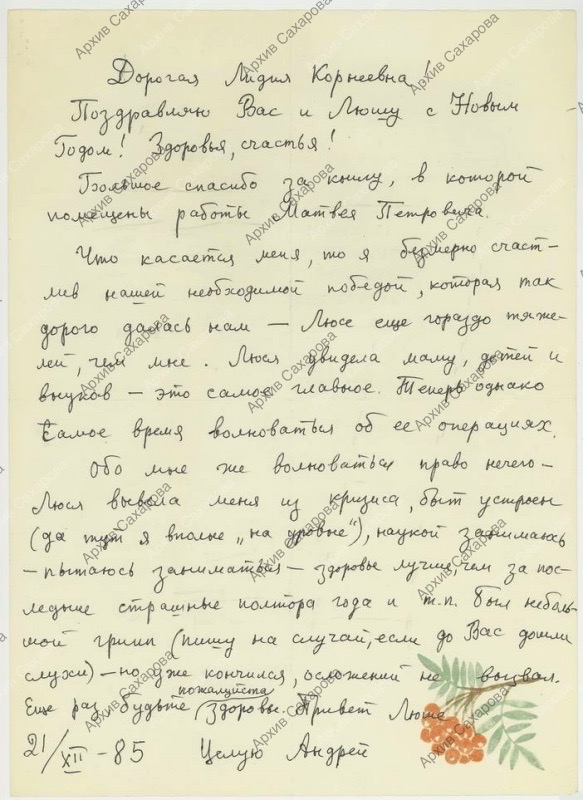 Дорогая Лидия Корнеевна!
Поздравляю Вас и Люшу с Новым
Годом! Здоровья, счастья!
Большое спасибо за книгу, в которой
помещены работы Матвея Петровича.
Что касается меня, то я безмерно счаст-
лив нашей необходимой победой, которая так
дорого далась нам — Люсе еще гораздо тяже-
лей, чем мне. Люся увидела маму, детей и
внуков — это самое главное. Теперь однако
самое время волноваться об ее операциях.
Обо мне же волноваться право нечего —
Люся вывела меня из кризиса, быт устроен
(да тут я вполне „на уровне“), наукой занимаюсь
— пытаюсь заниматься — здоровье лучше, чем за пос-
ледние страшные полтора года и т.п. Был неболь-
шой грипп (пишу на случай, если до Вас дошли
слухи) — но уже кончился, осложнений не вызвал.
Еще раз, будьте пожалуйста здоровы. Привет Люше
21/XII - 85 Целую Андрей
Архив Сахарова